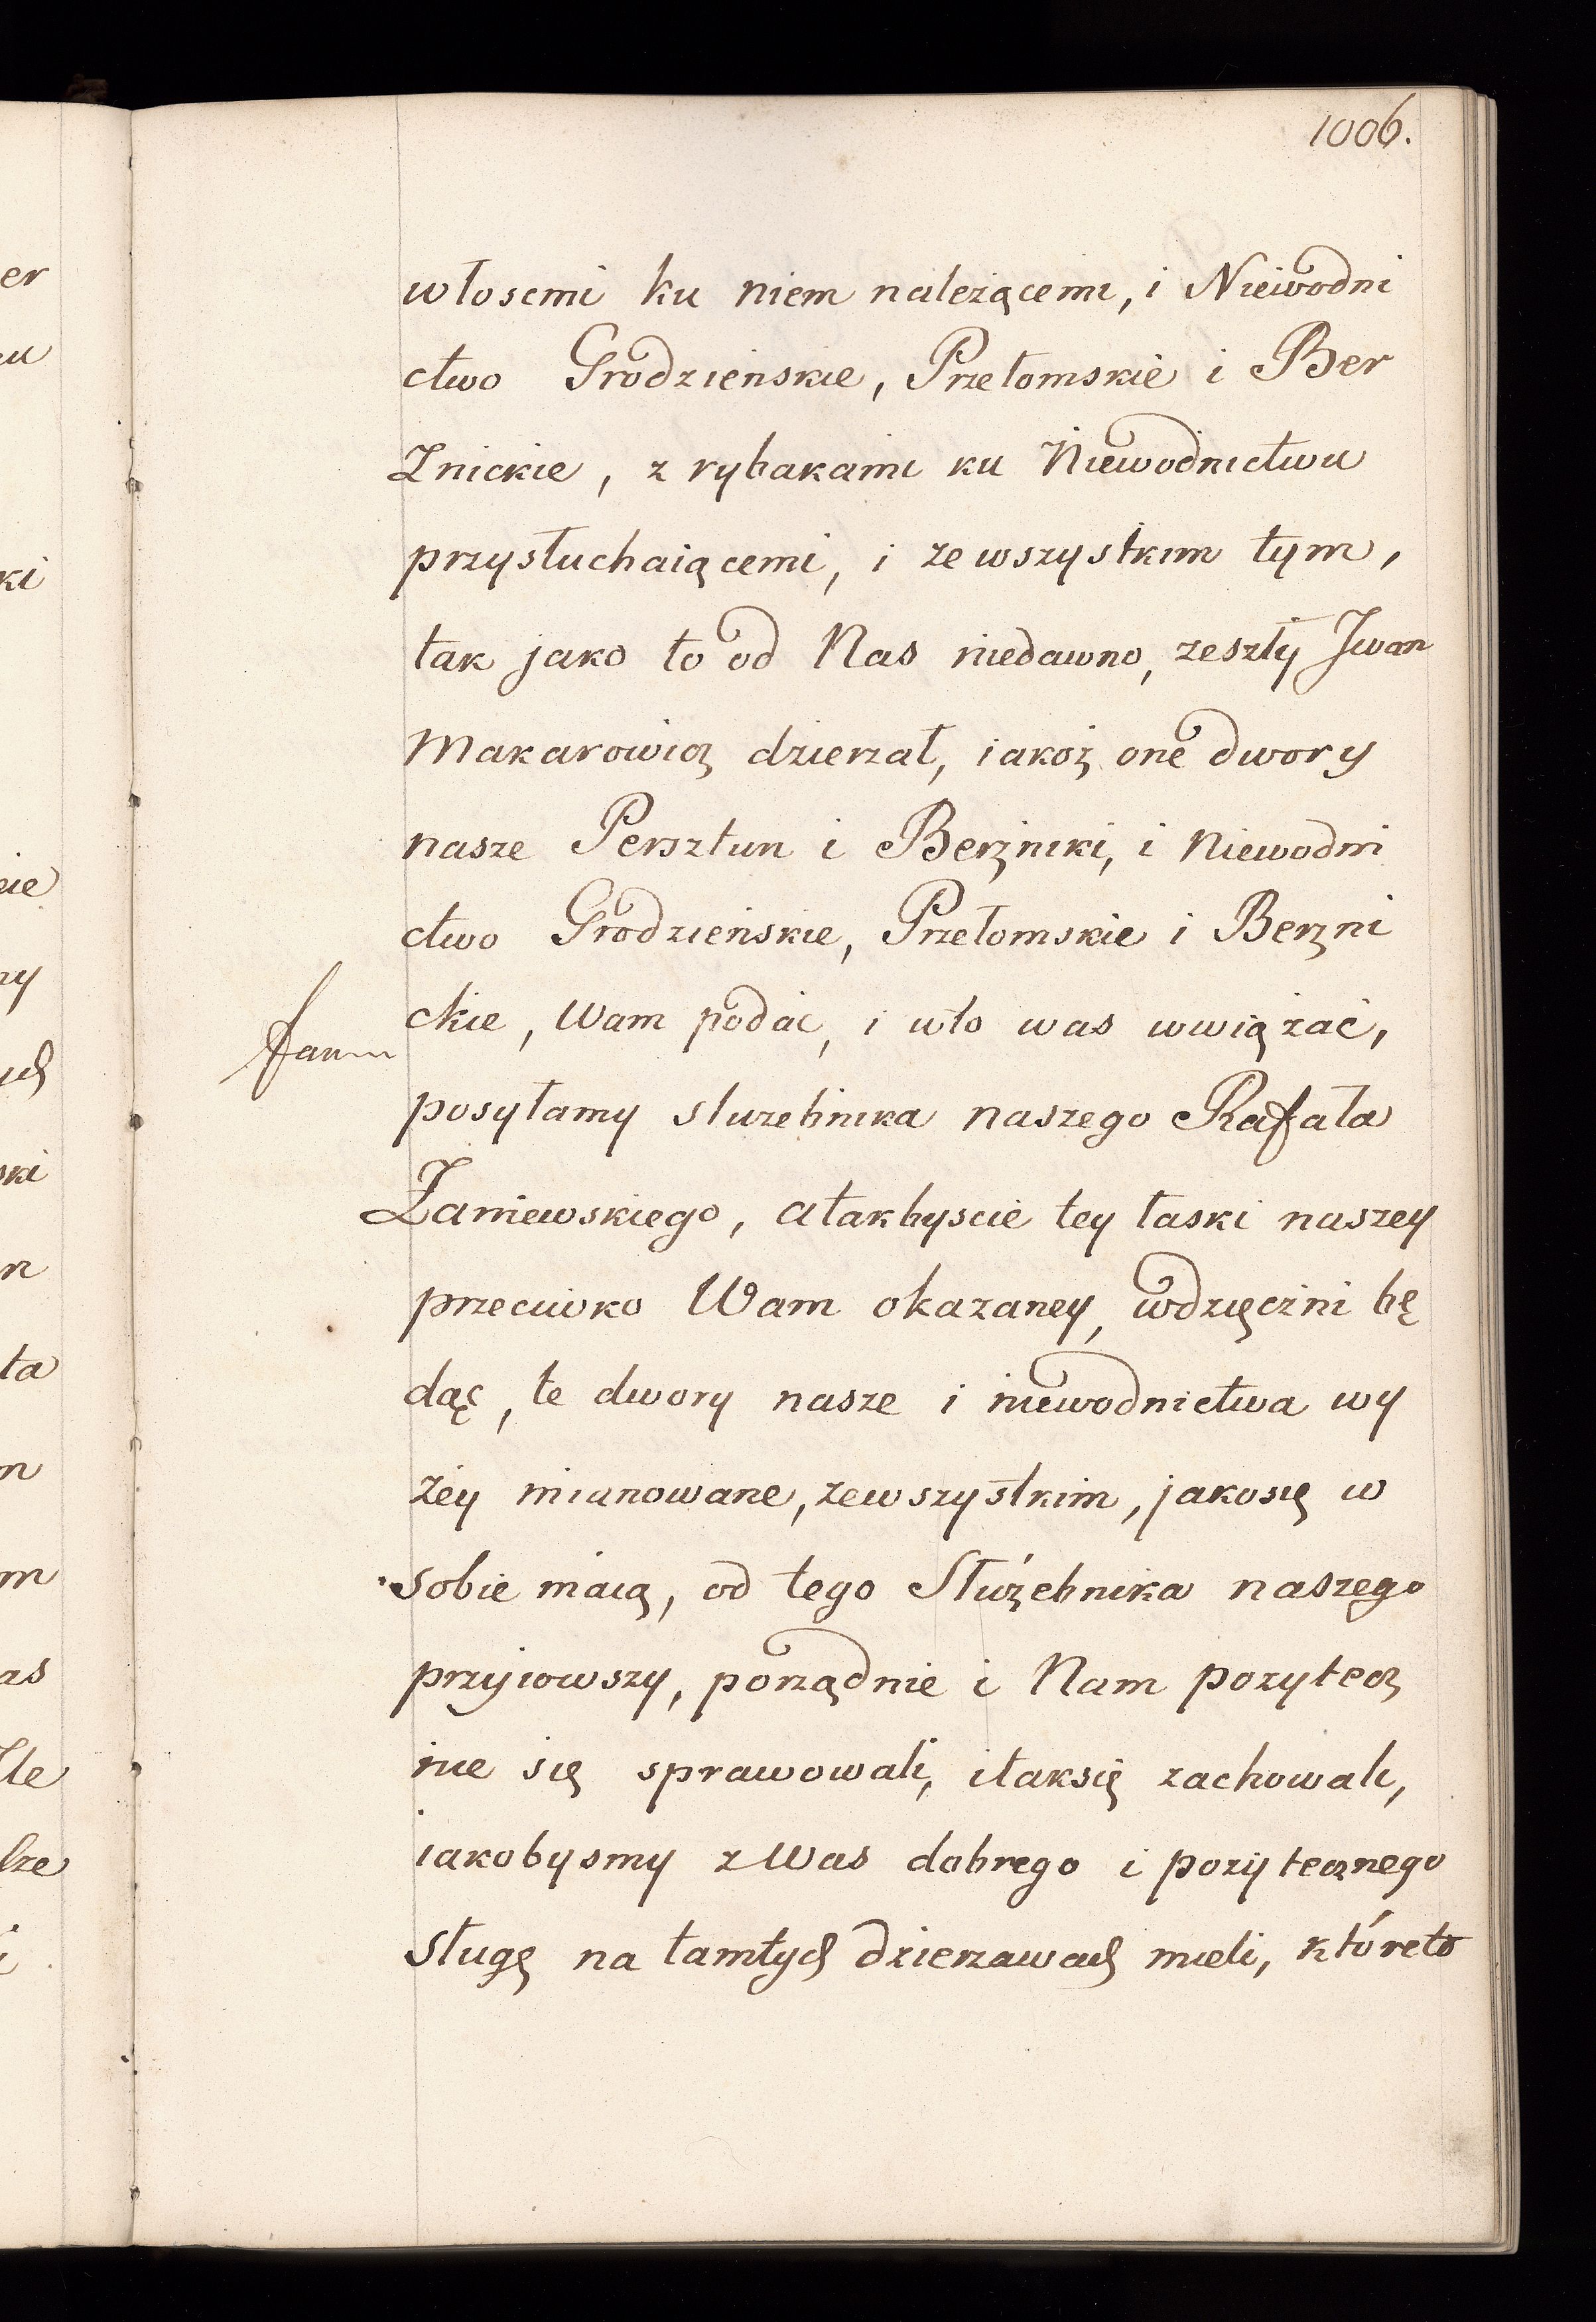 1006.
włoscmi ku niem należącemi, i Niewodni
ctwo Grodzieńskie, Przełomskie i Ber
Znickie, z rybakami ku Niewodnictwu
przysłuchaiącemi, i ze wszystkim tym,
tak jako to od Nas niedawno, zeszły Jwan
Makarowicz dzierzał, iakoż one dwory
nasze Persztun i Berzniki, i Niewodni
ctwo Grodzieńskie, Przełomskie i Berzni
ckie, Wam podać, i wto was wwiązać,
posyłamy słuzebnika naszego Rafała
Zaniewskiego, atakbyscie tey łaski naszey
przeciwko Wam okazaney, wdzięczni bę
dąc, te dwory nasze i niewodnictwa wy
żey mianowane, zewszystkim, jakosię w
sobie maią, od tego Służebnika naszego
przyiowszy, porządnie i Nam pozytecz
nie się sprawowali, itaksię zachowali,
iakobysmy z Was dobrego i pozytecznego
sługę na tamtych dzierzawach mieli, któreto
er
ki
ski
ta
as